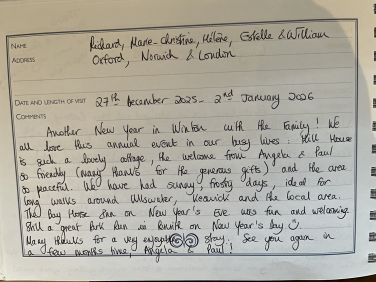 NAME Richard, Marie-Christine, Hélène, Estelle & William
ADDRESS Oxford, Norwich & London
DATE AND LENGTH OF VISIT 27th December 2025 - 2nd January 2026
COMMENTS
Another New Year in Winton with the Family! We
all love this annual event in our busy lives. Hill House
is such a lovely cottage, the welcome from Angela & Paul
so friendly (many thanks for the generous gifts) and the area
so peaceful. We have had sunny, frosty days, ideal for
long walks around Ullswater, Keswick and the local area.
The Bay Horse Inn on New Year's Eve was fun and welcoming.
a great Park Run in Penrith on New Year's Day
Many thanks for a very enjoyable stay. See you again in
a few months time, Angela & Paul!